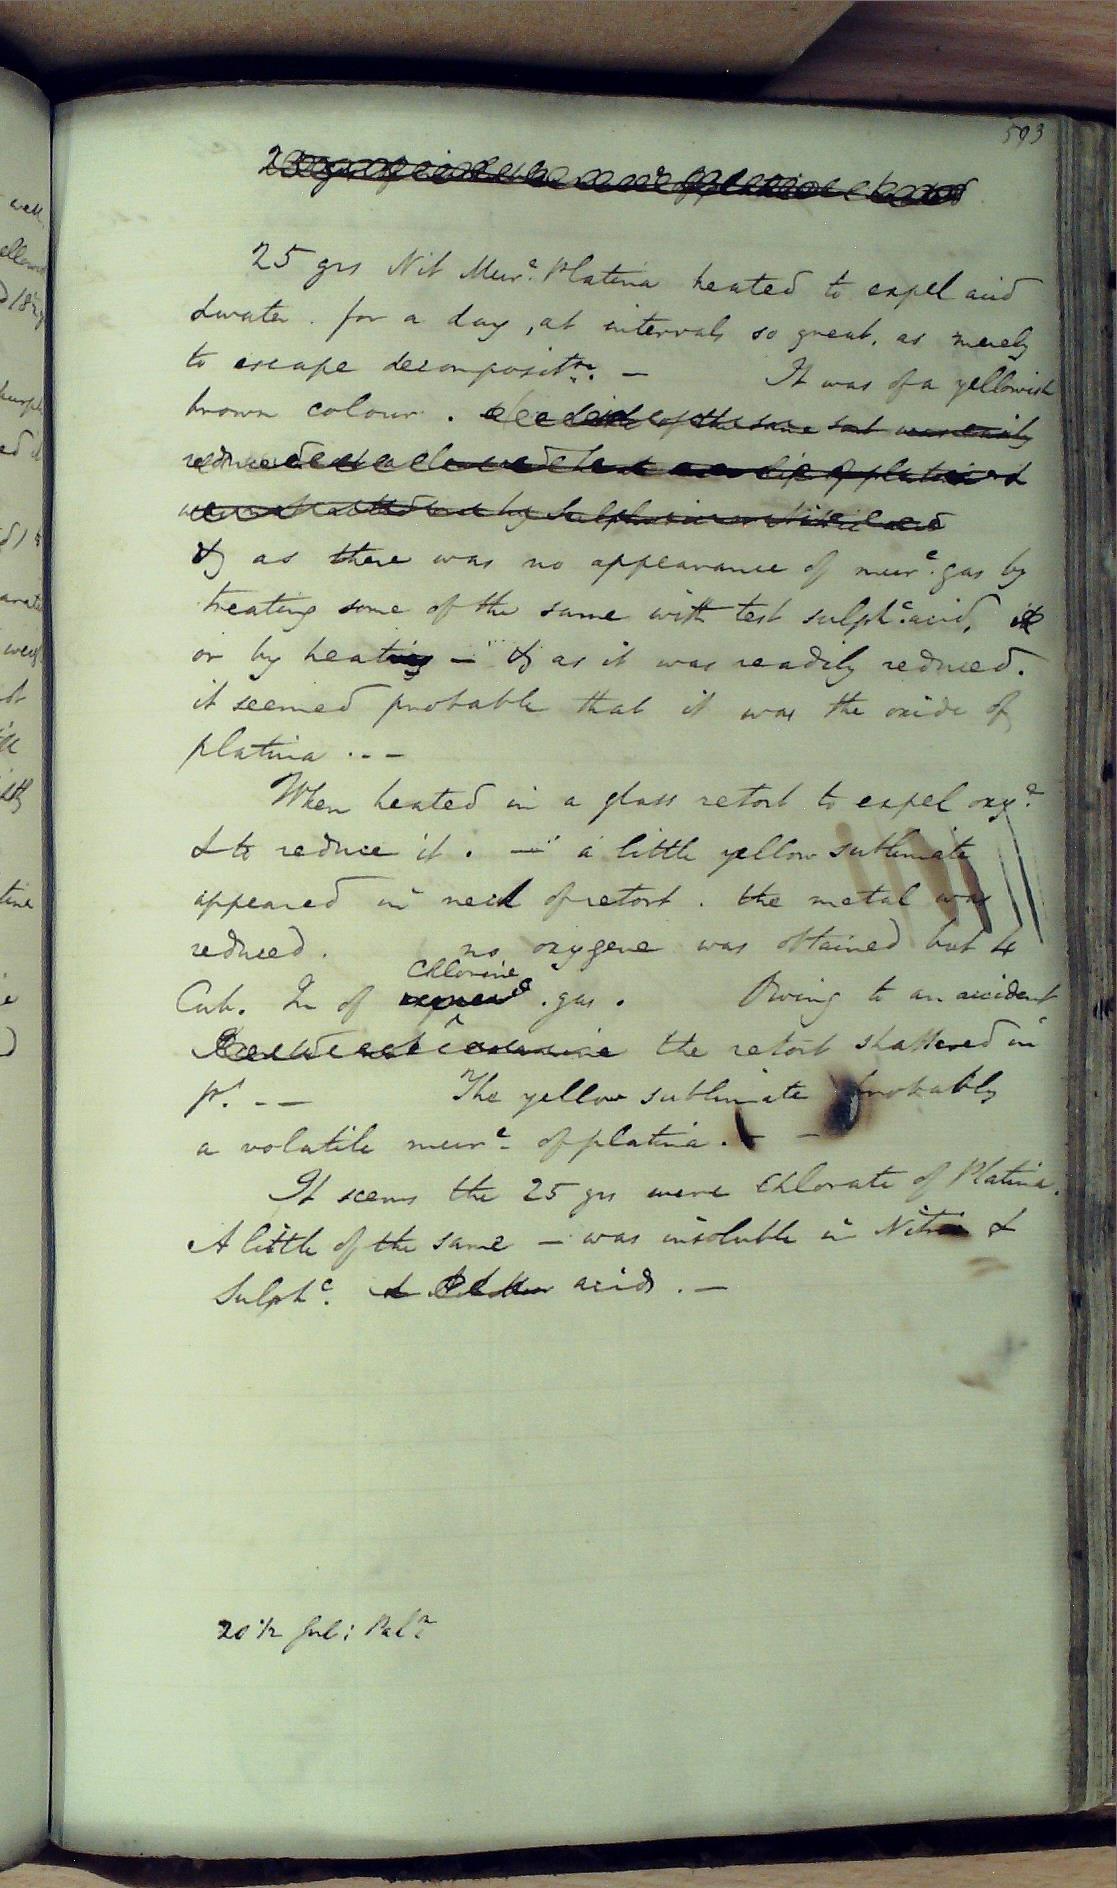 593
25 grs Nit Mur.c Platina heated to expel acid
& water. for a day, at intervals so great, as merely
to escape decompositn: — It was of a yellowish
brown colour. of the same sort was easily
reduced of platina &
by Sulphuric or Nitric acid
& as there was no appearance of mur.c gas by
treating some of the same with test sulph.c acid,
or by heating — & as it was readily reduced.
it seemed probable that it was the oxide of
platina . . —
When heated in a glass retort to expel oxy.e
& to reduce it. — a little yellow sublimate
appeared in neck of retort. the metal was
reduced. no oxygene was obtained but 4
Chlorine
Cub. In of gas. Owing to an accident
the retort shattered in
p.s — — The yellow sublimate probably
a volatile mur.c of platina. — —
It seems the 25 grs were Chlorate of Platina.
A little of the same — was insoluble in Nitric &
Sulph.c acids. —
20 1/2 Jul: